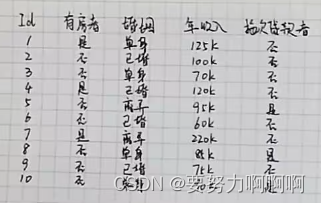 Id 有房者 婚姻 年收入 拖欠贷款者
1 是 单身 125k 否
2 否 已婚 100k 否
3 否 单身 70k 否
4 是 已婚 120k 否
5 否 离异 95k 是
6 否 已婚 60k 否
7 是 离异 220k 否
8 否 单身 85k 是
9 否 已婚 75k 否
10 否 单身 是
CSDN @要努力啊啊啊